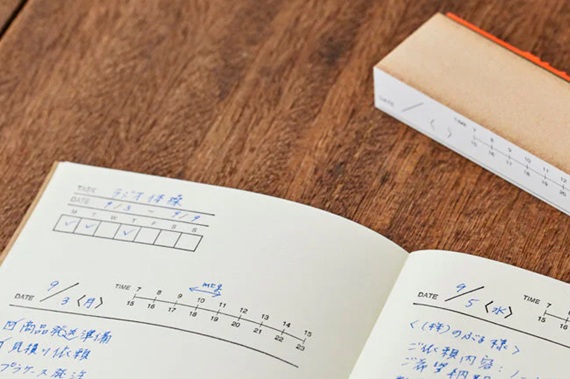 TASK ラジオ体操
DATE 9/3 ~ 9/9
M T W T F S S
DATE 9/3〈月〉
mtg
TIME 7 8 9 10 11 12 13 14 15
15 16 17 18 19 20 21 22 23
商品発送準備
見積り依頼
DATE 9/5〈水〉
TIME 7
15 16
〈(株)のぶる様〉
ご依頼内容:
ご希望納期
DATE / 〈 〉
TIME 7 8 9 10 11 12
15 16 17 18 19 20